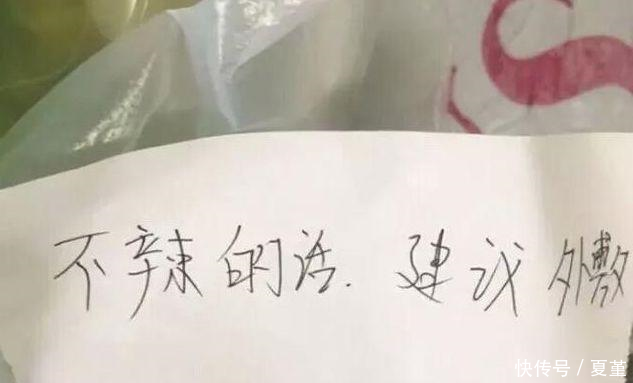 S
不辣的话.建议外敷
快传号/夏堇